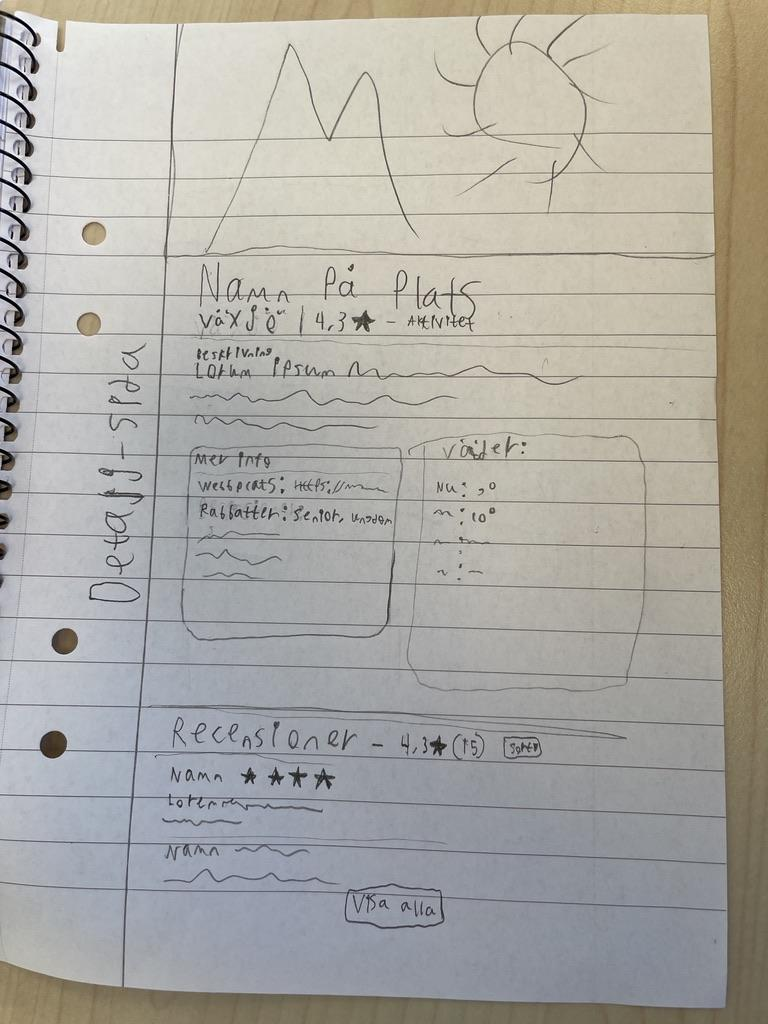 Namn På Plats
Växjö | 4,3★ - Aktivitet
Beskrivning
Lorum ipsum
Detalj-sida
Mer info
Webbplats: https://
Rabbatter: Senior, ungdom
Väder:
Nu: 
: 10°
Recensioner - 4,3★ (15)
Namn ★ ★ ★ ★
Lorem
Namn
Visa alla